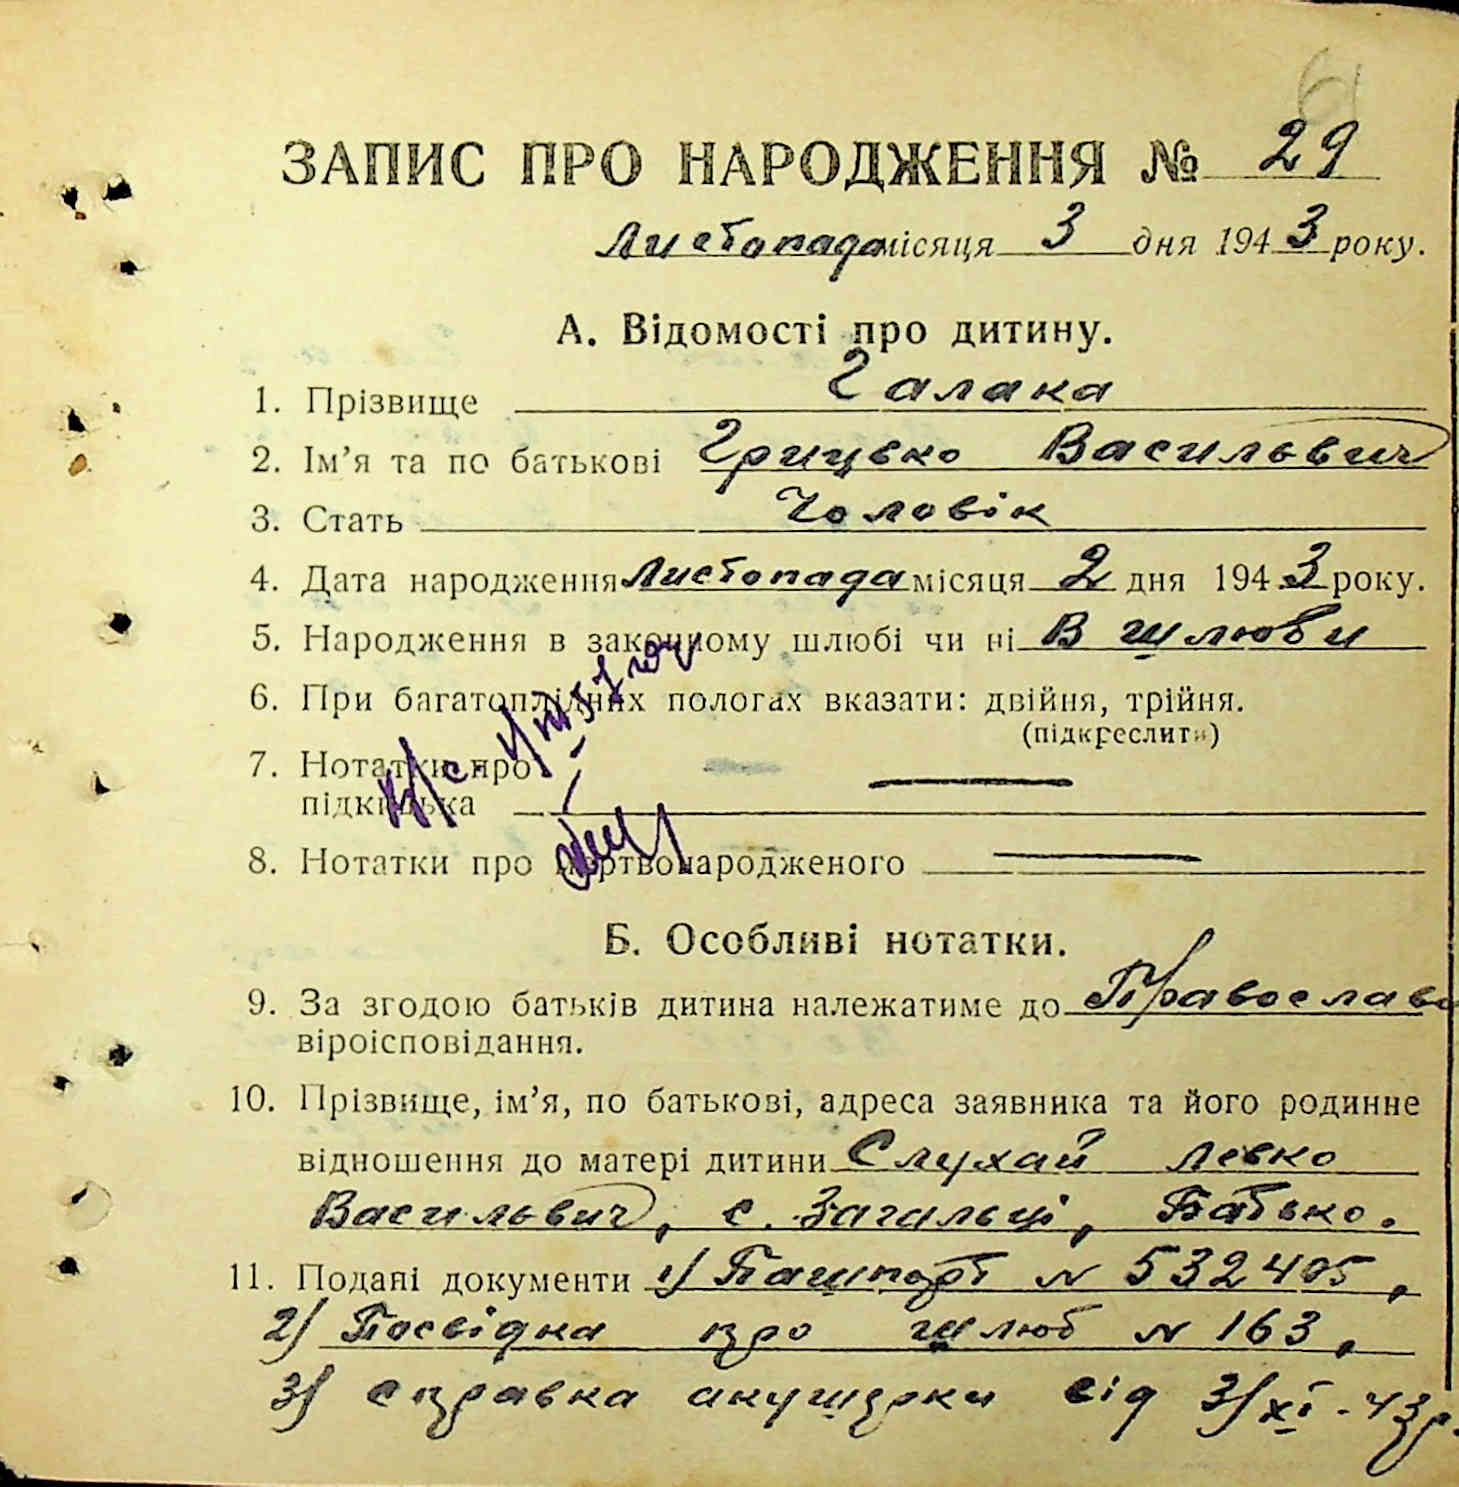 61
ЗАПИС ПРО НАРОДЖЕННЯ № 29
Листопада місяця 3 дня 1943 року.
А. Відомості про дитину.
1. Прізвище Галака
2. Ім'я та по батькові Грицько Васильвич
3. Стать Чоловік
4. Дата народження Листопада місяця 2 дня 1943 року.
5. Народження в законному шлюбі чи ні В шлюби
6. При багатоплідних пологах вказати: двійня, трійня.
(підкреслити)
7. Нотатки про
підкидька —
8. Нотатки про мертвонародженого —
Б. Особливі нотатки.
9. За згодою батьків дитина належатиме до Православн
віроісповідання.
10. Прізвище, ім'я, по батькові, адреса заявника та його родинне
відношення до матері дитини Слухай Левко
Васильвич, с. Загальці, Батько.
11. Подані документи 1) Пашпорт № 532405,
2) Посвідка про шлюб № 163,
3) справка акушерки від 3/XI-43р.